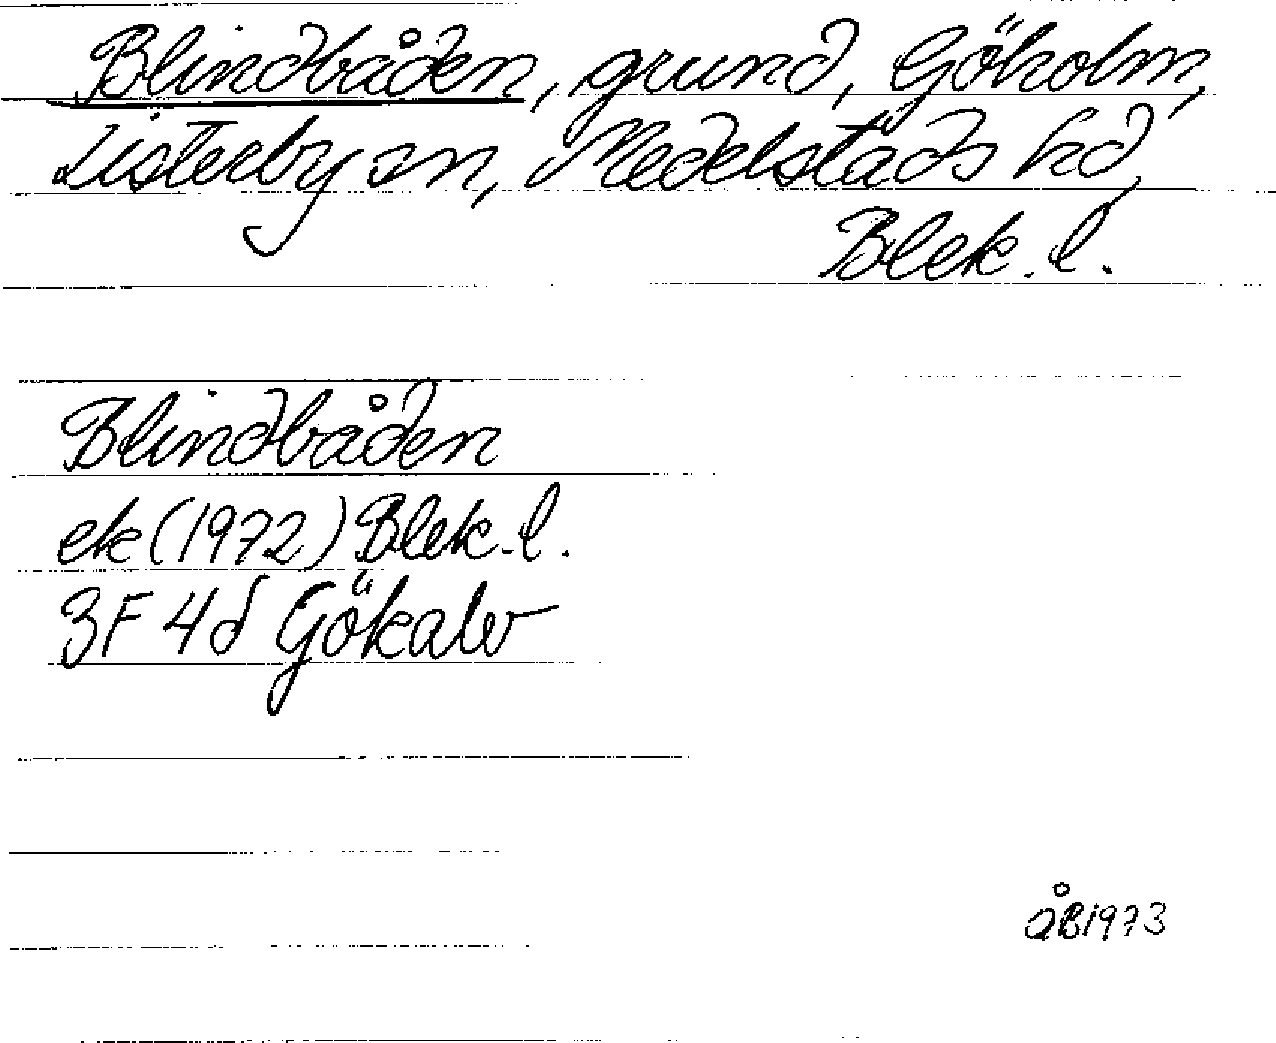 Blindbåden, grund, Göholm,
Listerby sn, Medelstads hd,
Blek. l.
Blindbåden
ek (1972) Blek. l.
3F 4d Gökalv
åB 1973